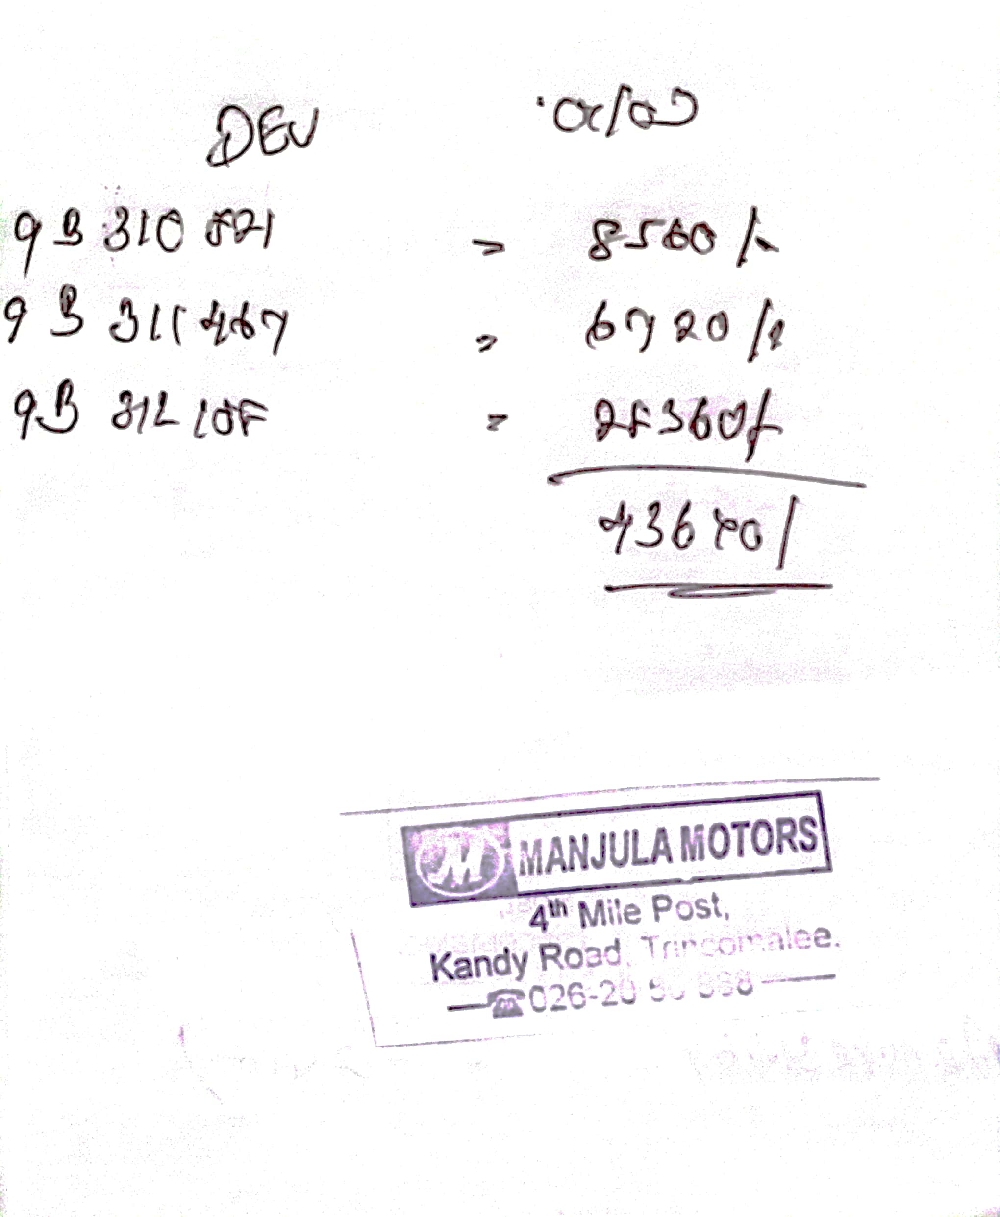 DEV
9B 310 821 = 8560/-
9B 311 467 = 6720/-
9B 312 = 28360/-
43640/
M MANJULA MOTORS
4th Mile Post,
Kandy Road, Trincomalee.
026-20